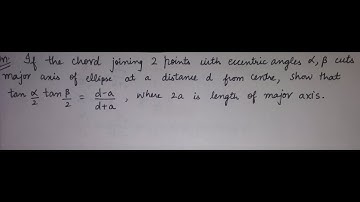 Qn: If the chord joining 2 points with eccentric angles α, β cuts
major axis of ellipse at a distance d from centre, show that
tan α/2 tan β/2 = d-a/d+a, where 2a is length of major axis.